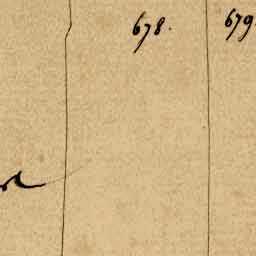 678.
679